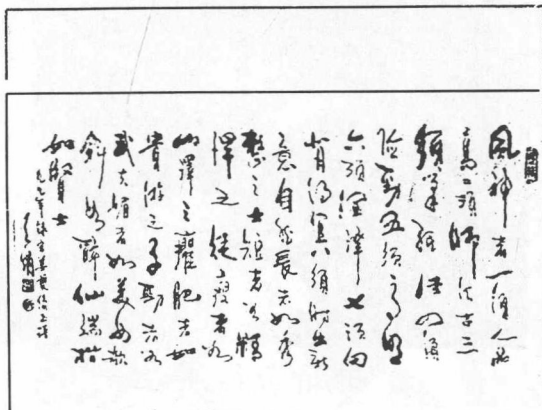 風神者一須人品
高二須師法古三
須筆紙佳四須
险勁五須高明
六須潤澤七須向
背得宜八須時出新
意自然長者如秀
整之士短者如精
悍之徒瘦者如
山澤之癯肥者如
貴游之子勁者如
武夫媚者如美女欹
斜如醉仙端楷
如賢士